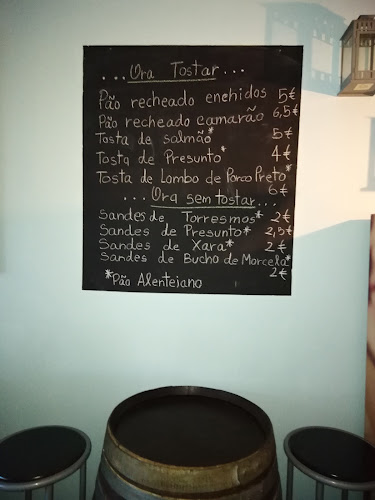 ...Ora Tostar...
Pão recheado enchidos 5€
Pão recheado camarão 6,5€
Tosta de salmão* 5€
Tosta de Presunto* 4€
Tosta de Lombo de Porco Preto*
6€
...Ora sem tostar...
Sandes de Torresmos* 2€
Sandes de Presunto* 2,5€
Sandes de Xara* 2€
Sandes de Bucho de Morcela*
2€
*Pão Alentejano